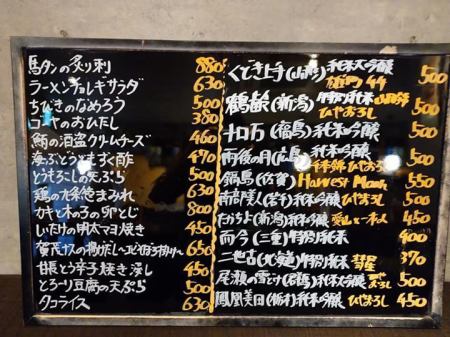 馬タンの炙り刺 880
ラーメンチョレギサラダ 630
ちびきのなめろう 500
ゴーヤのおひたし 380
鮪の酒盗クリームチーズ 460
海ぶどうともずく酢 470
とうもろこしの天ぷら 500
鶏の九条葱まみれ 630
カキと木の子の卵とじ 800
しいたけの明太マヨ焼き 450
賀茂ナスの揚げだし 650
甘長とう辛子焼き浸し 450
とろーり豆腐の天ぷら 500
タコライス 630
くどき上手(山形)純米大吟醸 雄町44 500
鶴齢(新潟)特別純米 山田錦 ひやおろし 500
十口万(福島)純米吟醸 500
雨後の月(広島)純米吟醸 千本錦 ひやおろし 500
鍋島(佐賀) Harvest Moon 550
南部美人(岩手)純米吟醸 ひやおろし 500
たかちよ(新潟)純米吟醸 愛山 450
而今(三重)特別純米 400
二世古(北海道)特別純米 彗星 370
尾瀬の雪どけ(群馬)純米大吟醸 ひやおろし 500
鳳凰美田(栃木)純米吟醸 ひやおろし 450